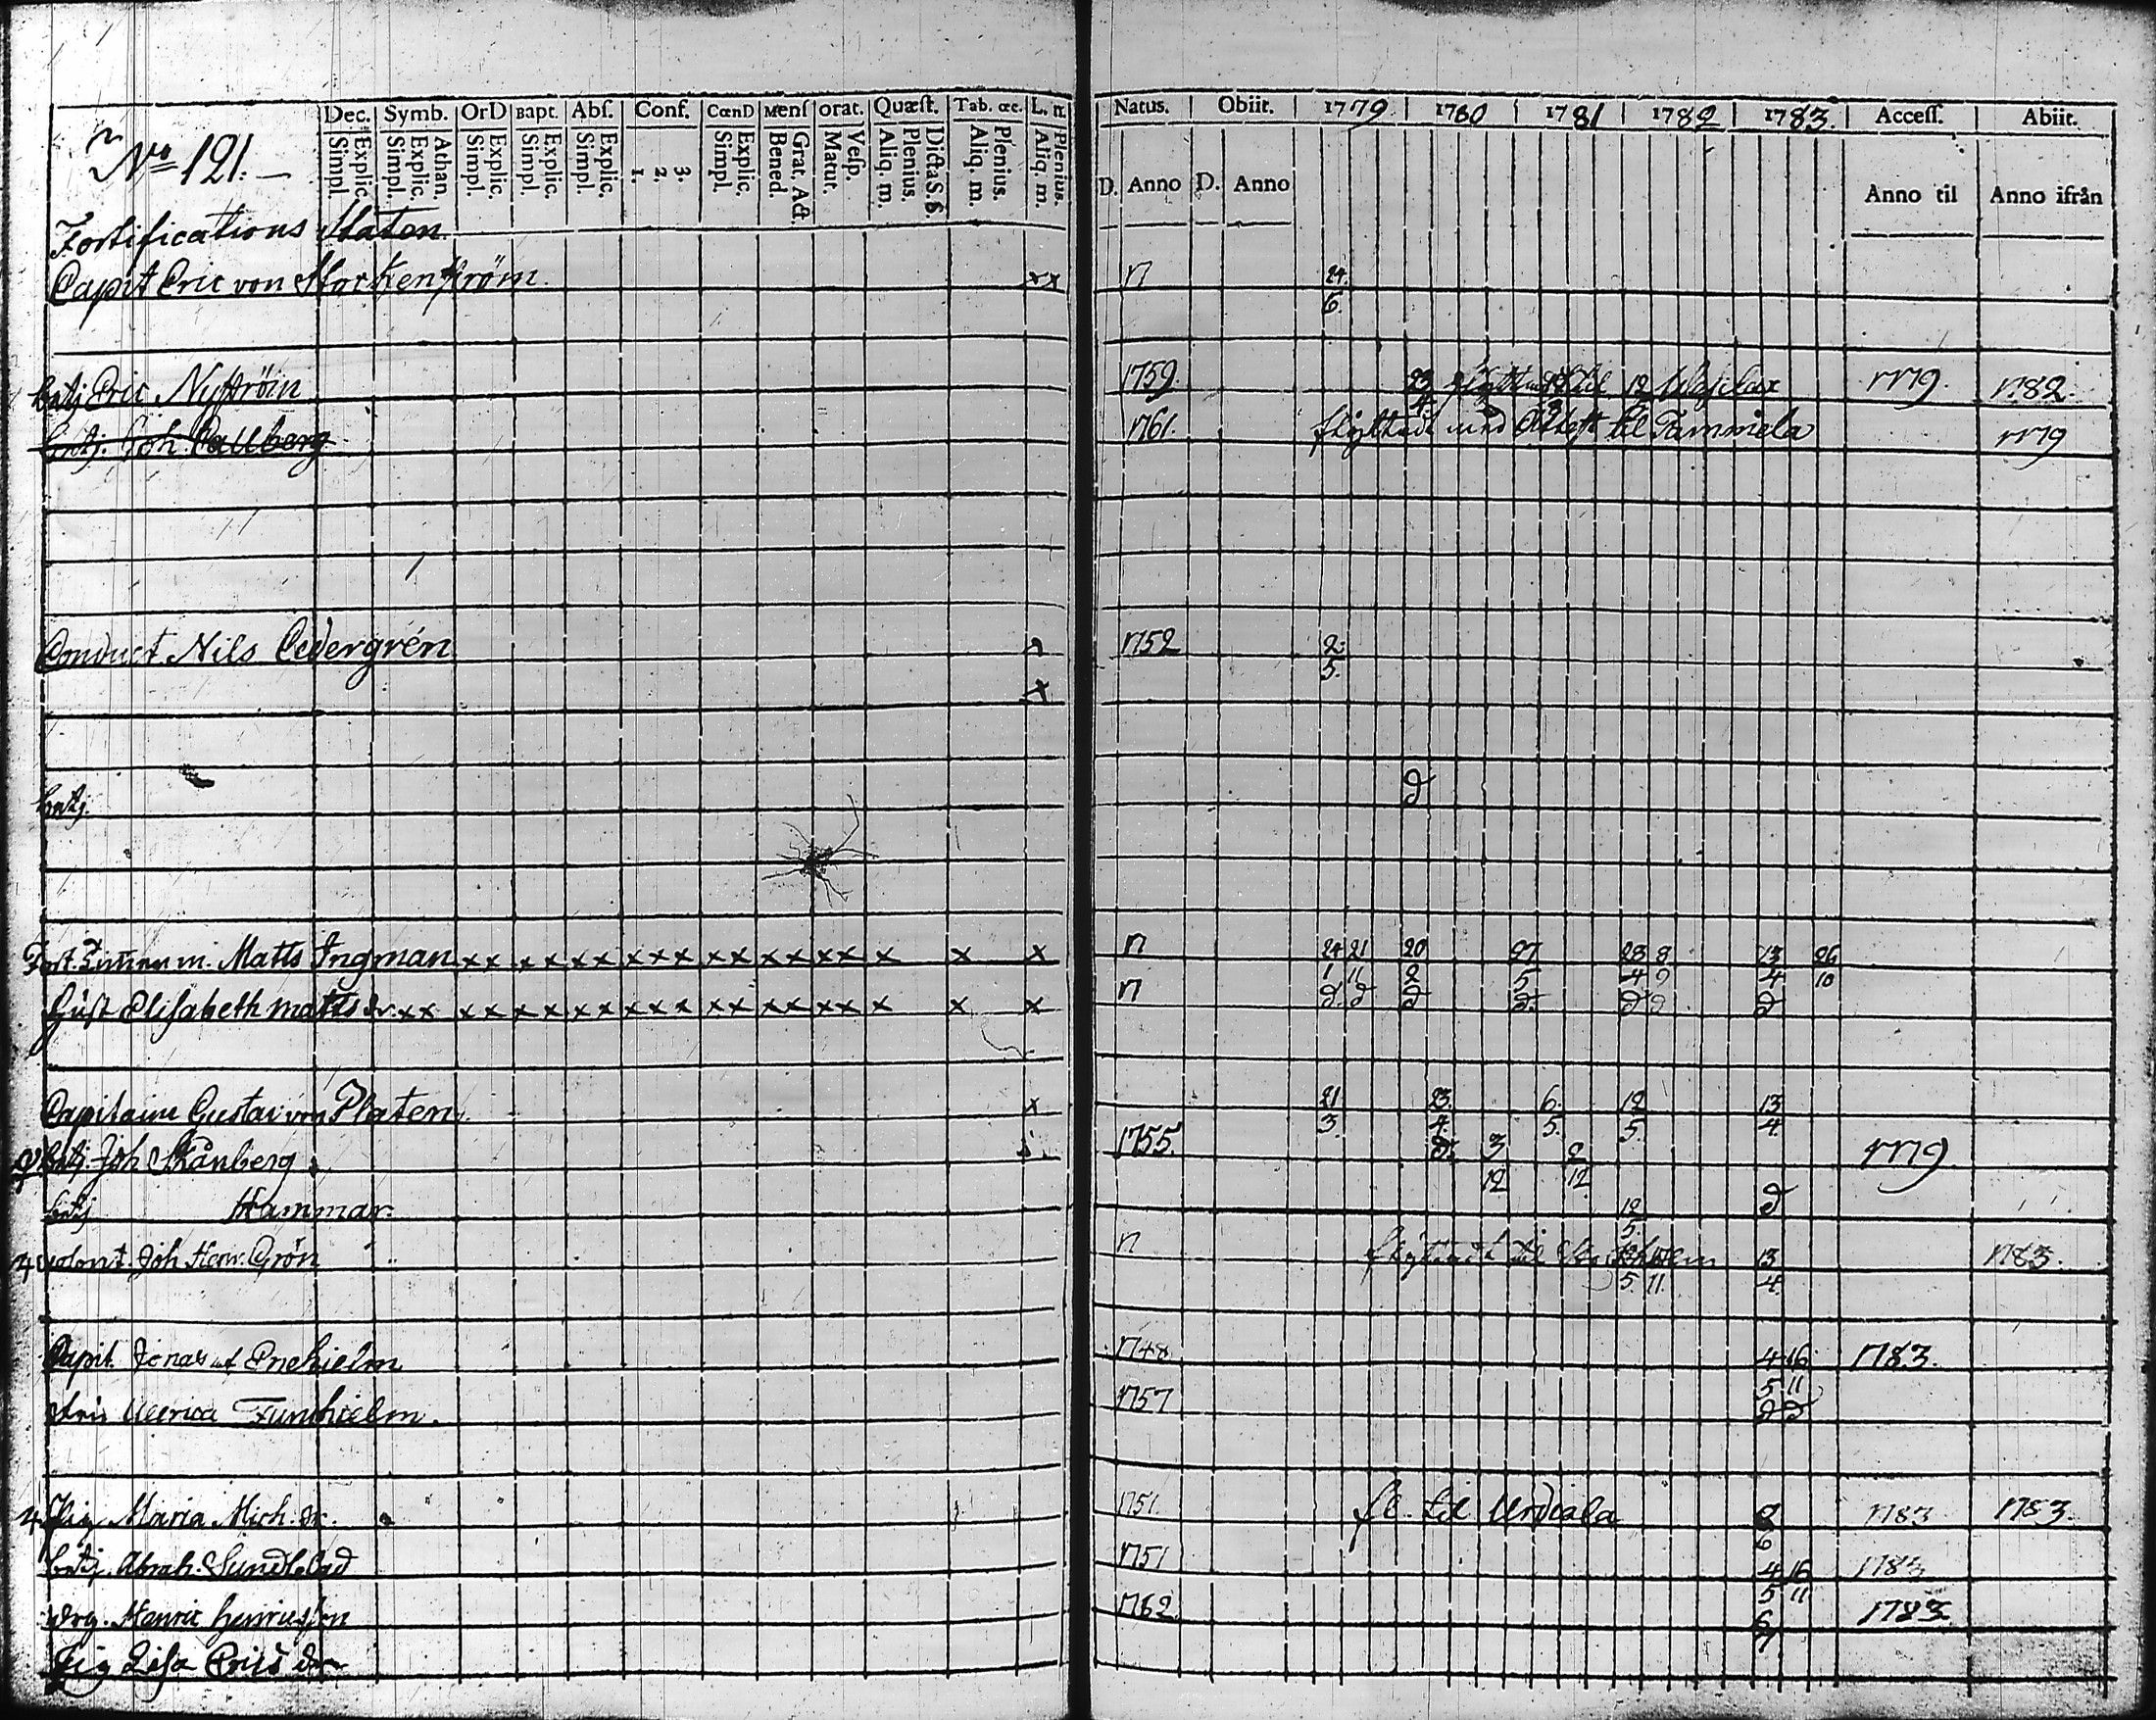 Dec. Symb. OrD Bapt. Abſ. Conf. CœnD Menſ orat. Quæſt. Tab. œc. Natus. Obiit. 1779 1780 1781 1782 1783. Acceſſ. Abiit.
No 121.
Simpl. Explic. Simpl. Explic. Athan. Simpl. Explic. Simpl. Explic. Simpl. Explic. 1. 2. 3. Simpl Explic. Bened. Grat. Act. Matut. Veſp. Aliq. m. Plenius. Dicta S. S. Aliq. m. Plenius. Aliq. m. Plenius. D. Anno D. Anno Anno til Anno ifrån
Fortifications Staten
Capit Eric von n 24.
6.
betj Eric Nyſtröm 1759. 23 12 1779. 1782.
betj. Joh. 1761. flyttadt med Atteſt til Tammela 1779
Conduct Nils Cedergrén 1752 2.
5.
x
betj. d
Matts Ingman x x x x x x x x x x x x x x x x x x n 24 21 20 27 28 8 13 26
1 11 2 5 4 9 4 10
Huſt Eliſabeth Matts dr x x x x x x x x x x x x x x x x x x x x n d d d d d d d
Capitaine Gustav von Platen x 21 23. 6. 12 13
3. 4. 5. 5. 4.
betj. Joh Skånberg 1755. d. 3 2 1779.
12 12
betj Hammar. 12 d
5.
volont. Joh Henr. Grön n flyttadt til Stockholm 13 1783.
5. 11. 4.
Capit. Jonas af Enehielm 1748 4 16 1783.
5 11
Fru Ulerica Furuhielm. 1757 d d
Pig Maria Mich. dr. 1751. fl. til Urdiala 2 1783 1783.
6
betj. Abrah. Sundblad 1751 4 16 1783
5 11
drg. Henric Henricsson 1762 6 1783
7
Pig Liſa Erics dr